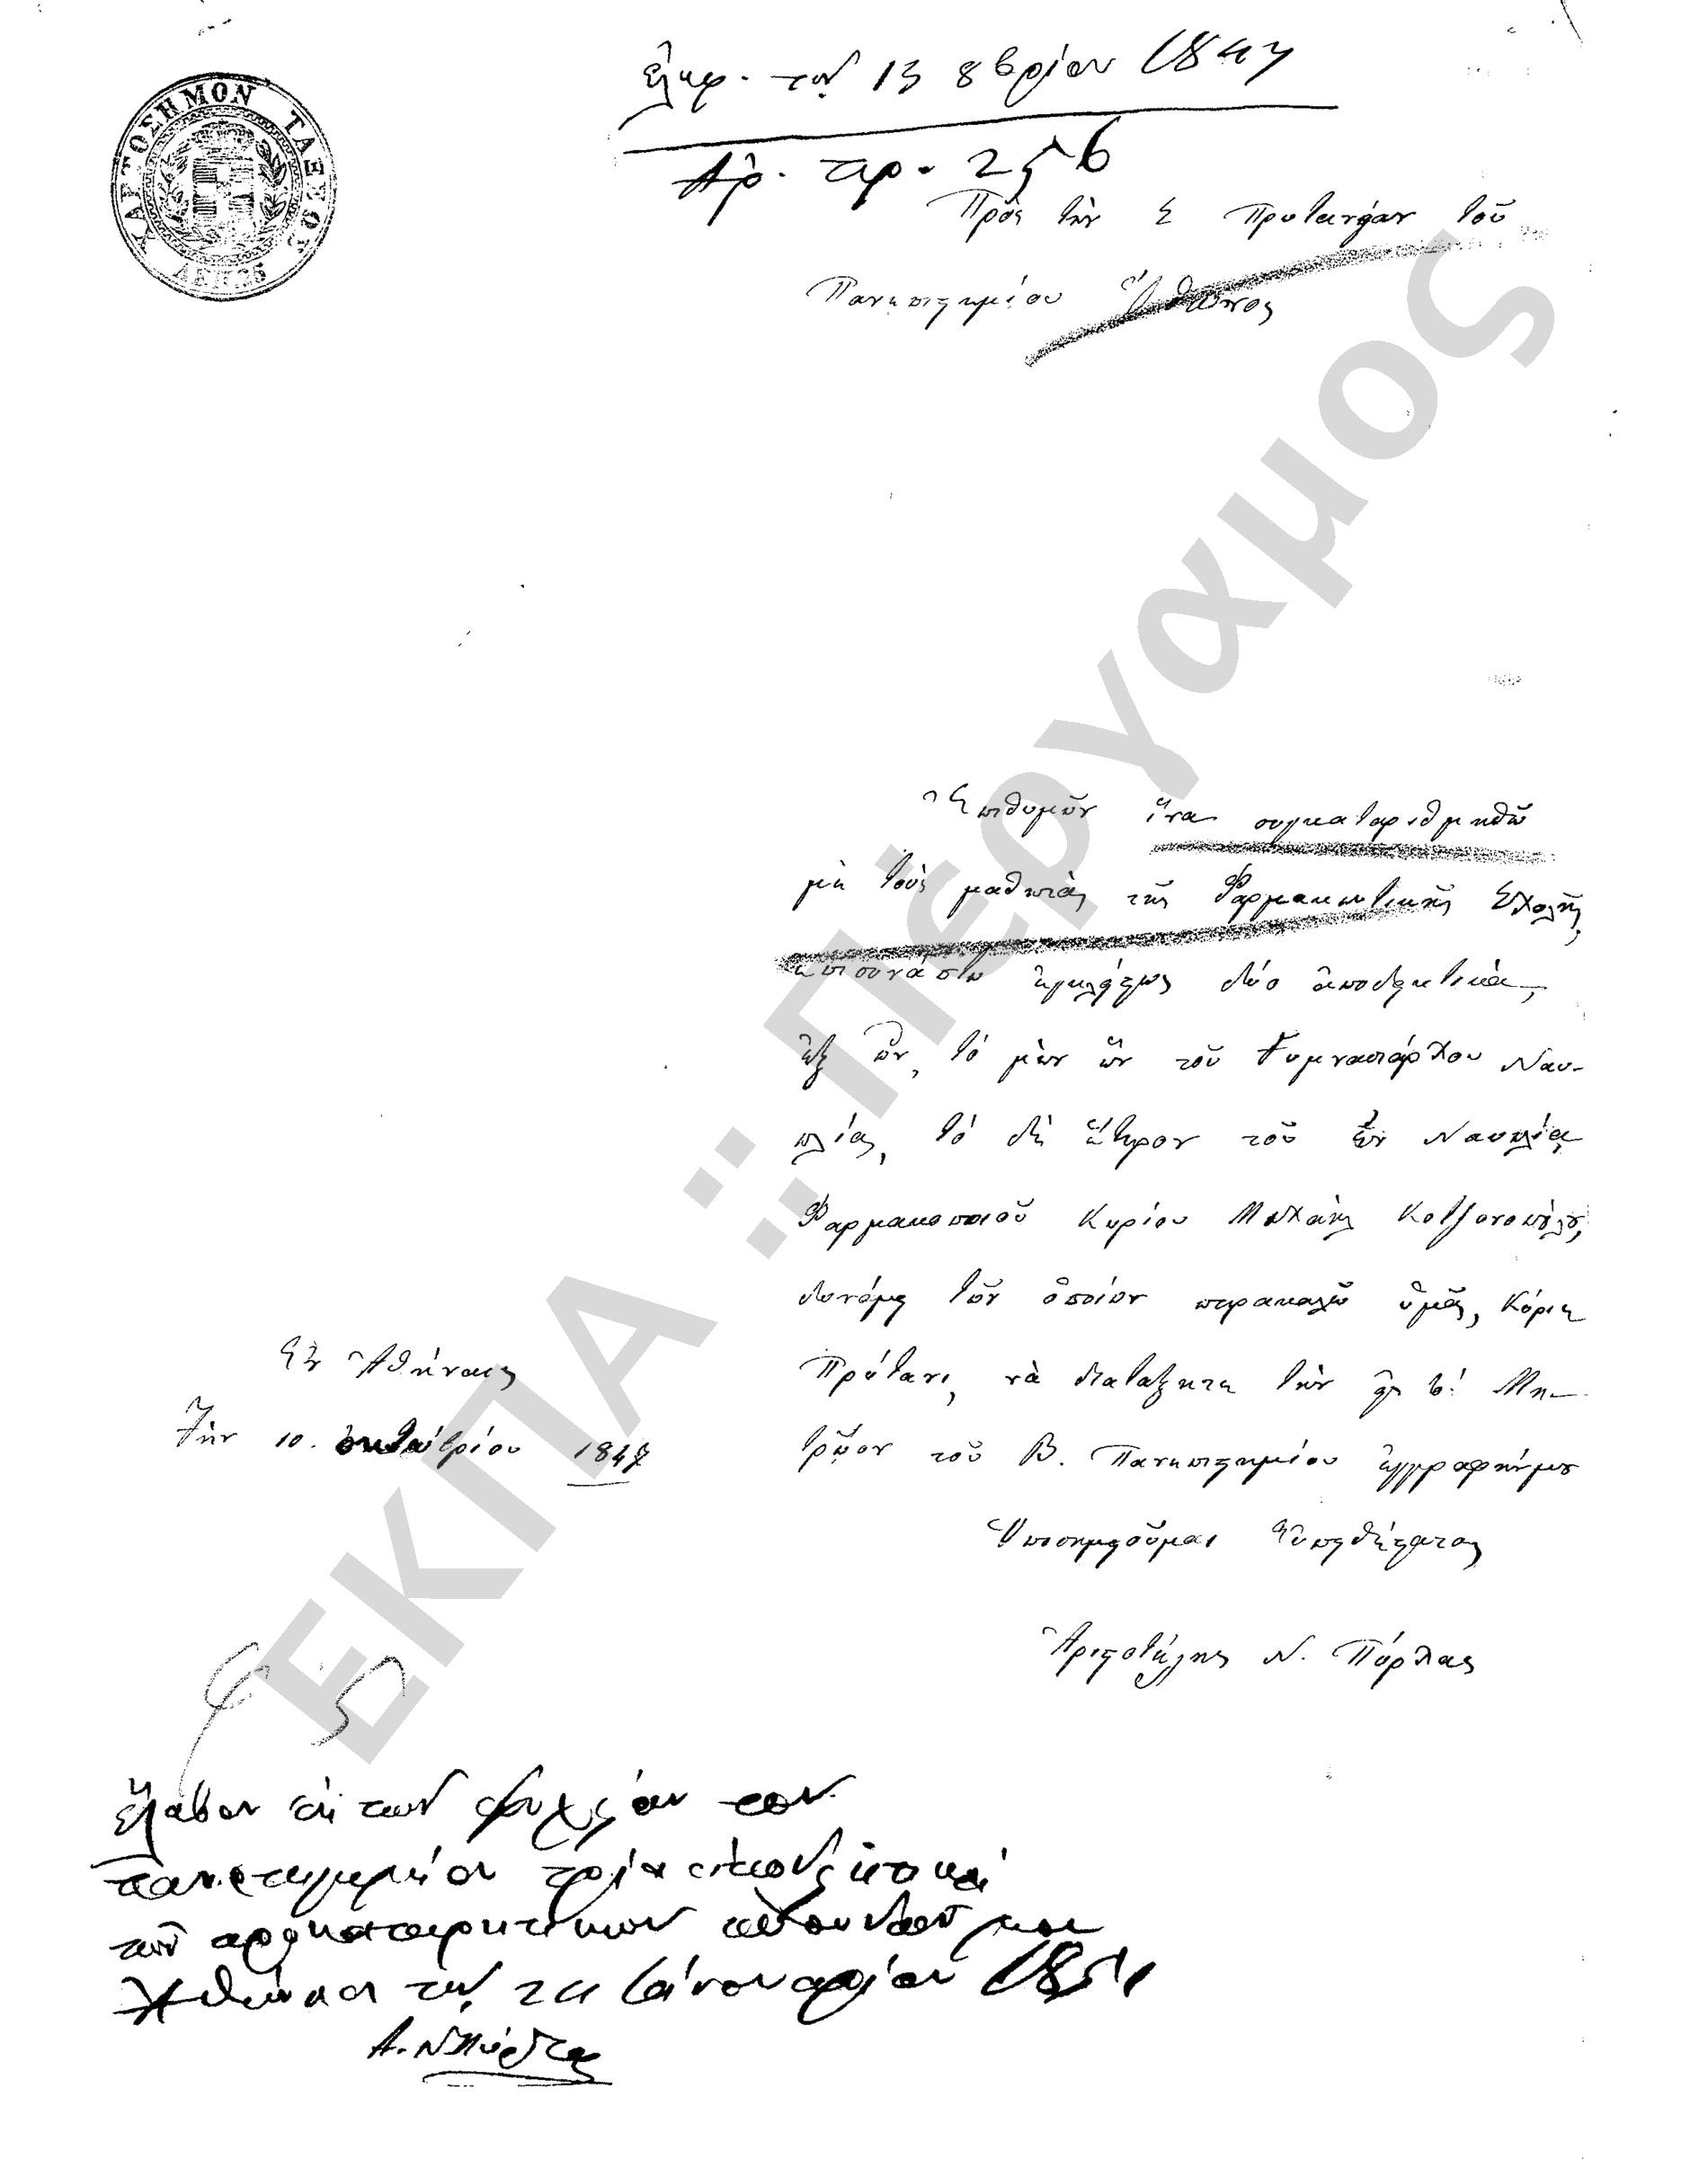 ΧΑΡΤΟΣΗΜΟΝ ΤΑΞΕΩΣ
ΛΕΠ. 25
Ἐλήφ. τὴν 13 8βρίου 1847
Ἀρ. πρ. 256
Πρὸς τὴν Σ Πρυτανείαν τοῦ
Πανεπιστημίου Ὄθωνος
Ἐπιθυμῶν ἵνα συγκαταριθμηθῶ
μὲ τοὺς μαθητὰς τῆς Φαρμακευτικῆς Σχολῆς,
ἐπισυνάπτω ἐγκλείστως δύο ἀποδεικτικὰ,
ἐξ ὧν, τὸ μὲν ἓν τοῦ Γυμνασιάρχου Ναυ-
πλίας, τὸ δὲ ἕτερον τοῦ ἐν Ναυπλίᾳ
Φαρμακοποιοῦ Κυρίου Μιχαὴλ Κοτζονοπούλου,
δυνάμει τῶν ὁποίων παρακαλῶ ὑμᾶς, Κύριε
Πρύτανι, νὰ διατάξητε τὴν εἰς τὸ Μη-
τρῷον τοῦ Β. Πανεπιστημίου ἐγγραφήν μου
Ὑποσημειοῦμαι Εὐπειθέστατος
Ἀριστοτέλης Ν. Πύρλας
Ἐν Ἀθήναις
Τὴν 10. ὀκτωβρίου 1847
Ἔλαβον ἐκ τῶν ἀρχείων του
πανεπιστημίου
τῶν προκαταρκτικῶν σπουδῶν μου
Ἀθήναι τὴν Ἰανουαρίου 1851
Α. Ν Πύρλας
ΕΚΠΑ :: Πέργαμος